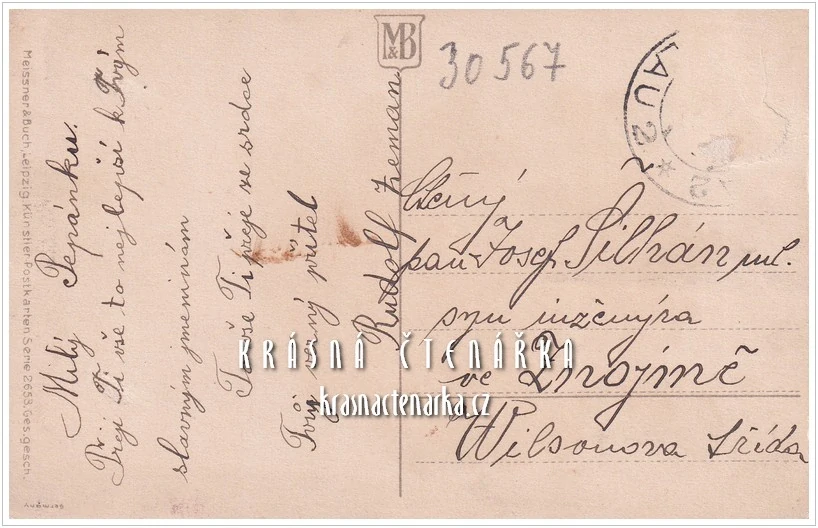 Meissner & Buch, Leipzig Künstler-Postkarten Serie 2658 Ges. gesch.
Germany
M&B
30567
AU 2
Milý Pepánku.
Přeji Ti vše to nejlepší k Tvým
slavným jmeninám
To vše Ti přeje ze srdce
Tvůj věrný přítel
Rudolf Zeman
Ctěný
pan Josef Šilhán ml.
syn inženýra
ve Znojmě
Wilsonova třída
KRÁSNÁ ČTENÁŘKA
krasnactenarka.cz